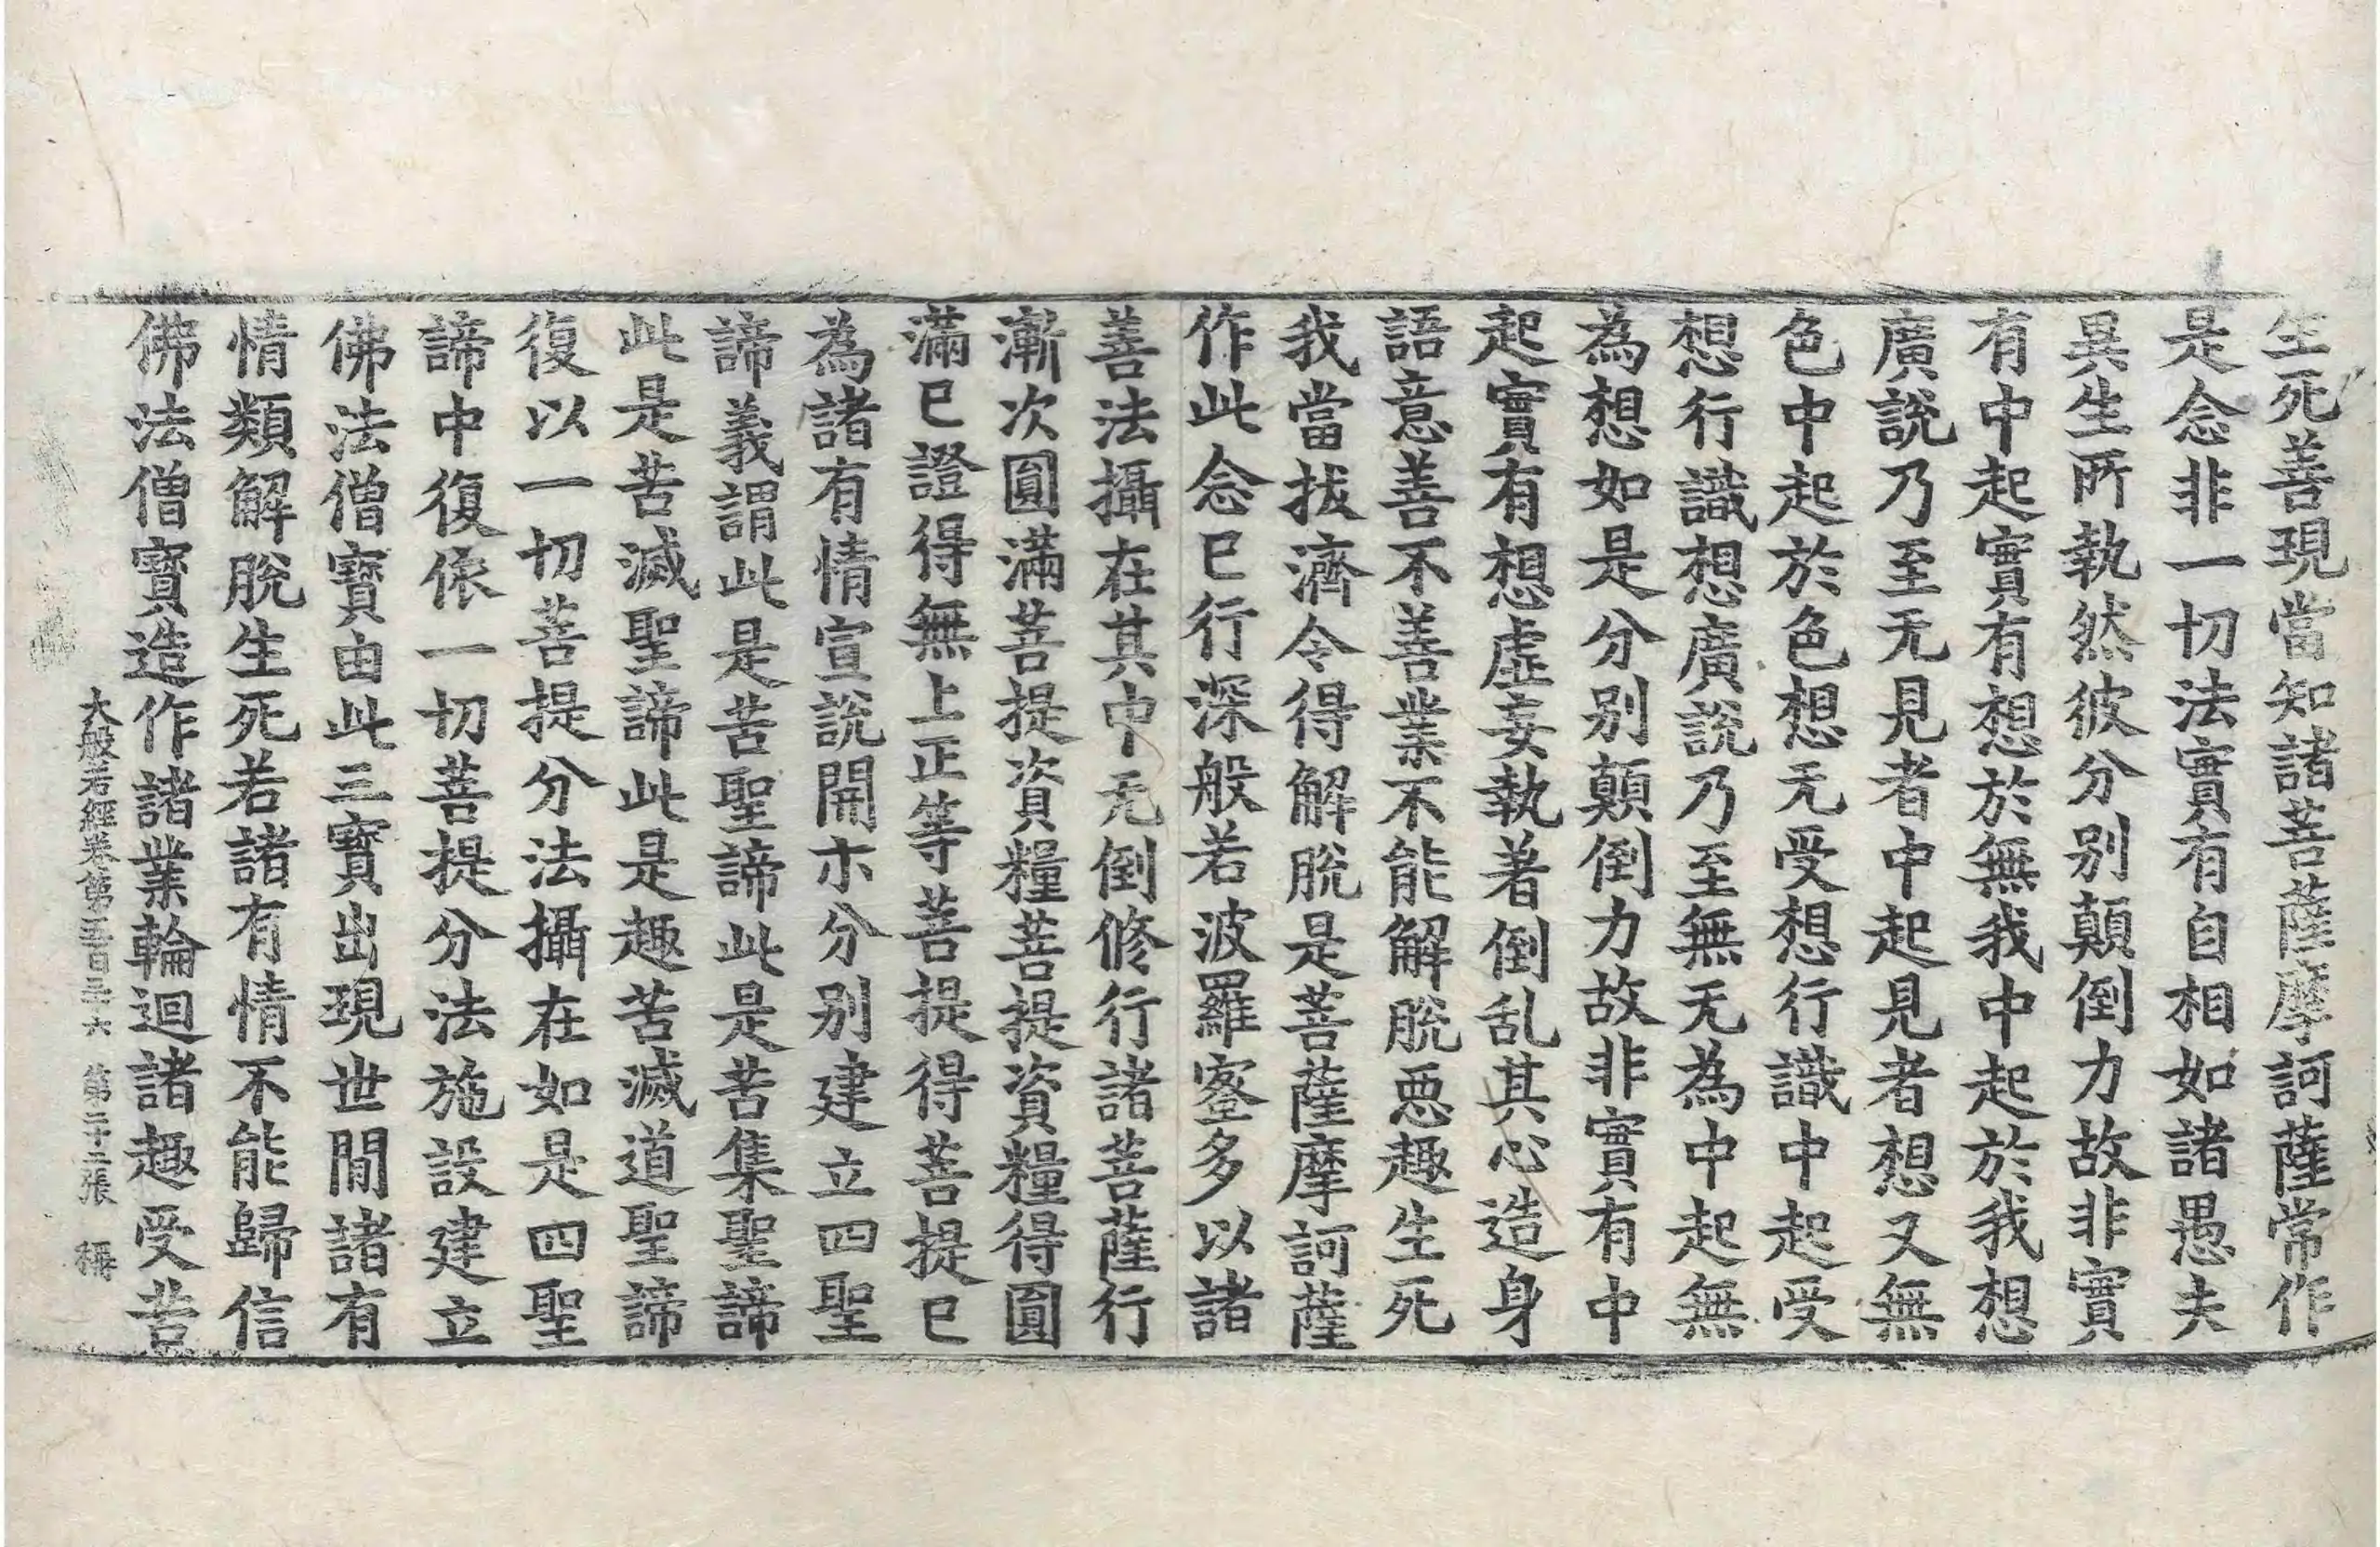 生死善現當知諸菩薩摩訶薩常作
是念非一切法實有自相如諸愚夫
異生所執然彼分別顛倒力故非實
有中起實有想於無我中起於我想
廣說乃至无見者中起見者想又無
色中起於色想无受想行識中起受
想行識想廣說乃至無无為中起無
為想如是分別顛倒力故非實有中
起實有想虛妄執著倒乱其心造身
語意善不善業不能解脫惡趣生死
我當拔濟令得解脫是菩薩摩訶薩
作此念已行深般若波羅蜜多以諸
善法攝在其中无倒修行諸菩薩行
漸次圓滿菩提資糧菩提資糧得圓
滿已證得無上正等菩提得菩提已
為諸有情宣說開示分別建立四聖
諦義謂此是苦聖諦此是苦集聖諦
此是苦滅聖諦此是趣苦滅道聖諦
復以一切菩提分法攝在如是四聖
諦中復依一切菩提分法施設建立
佛法僧寶由此三寶出現世間諸有
情類解脫生死若諸有情不能歸信
佛法僧寶造作諸業輪迴諸趣受苦
大般若經卷第五百三十六 第二十二張 稱